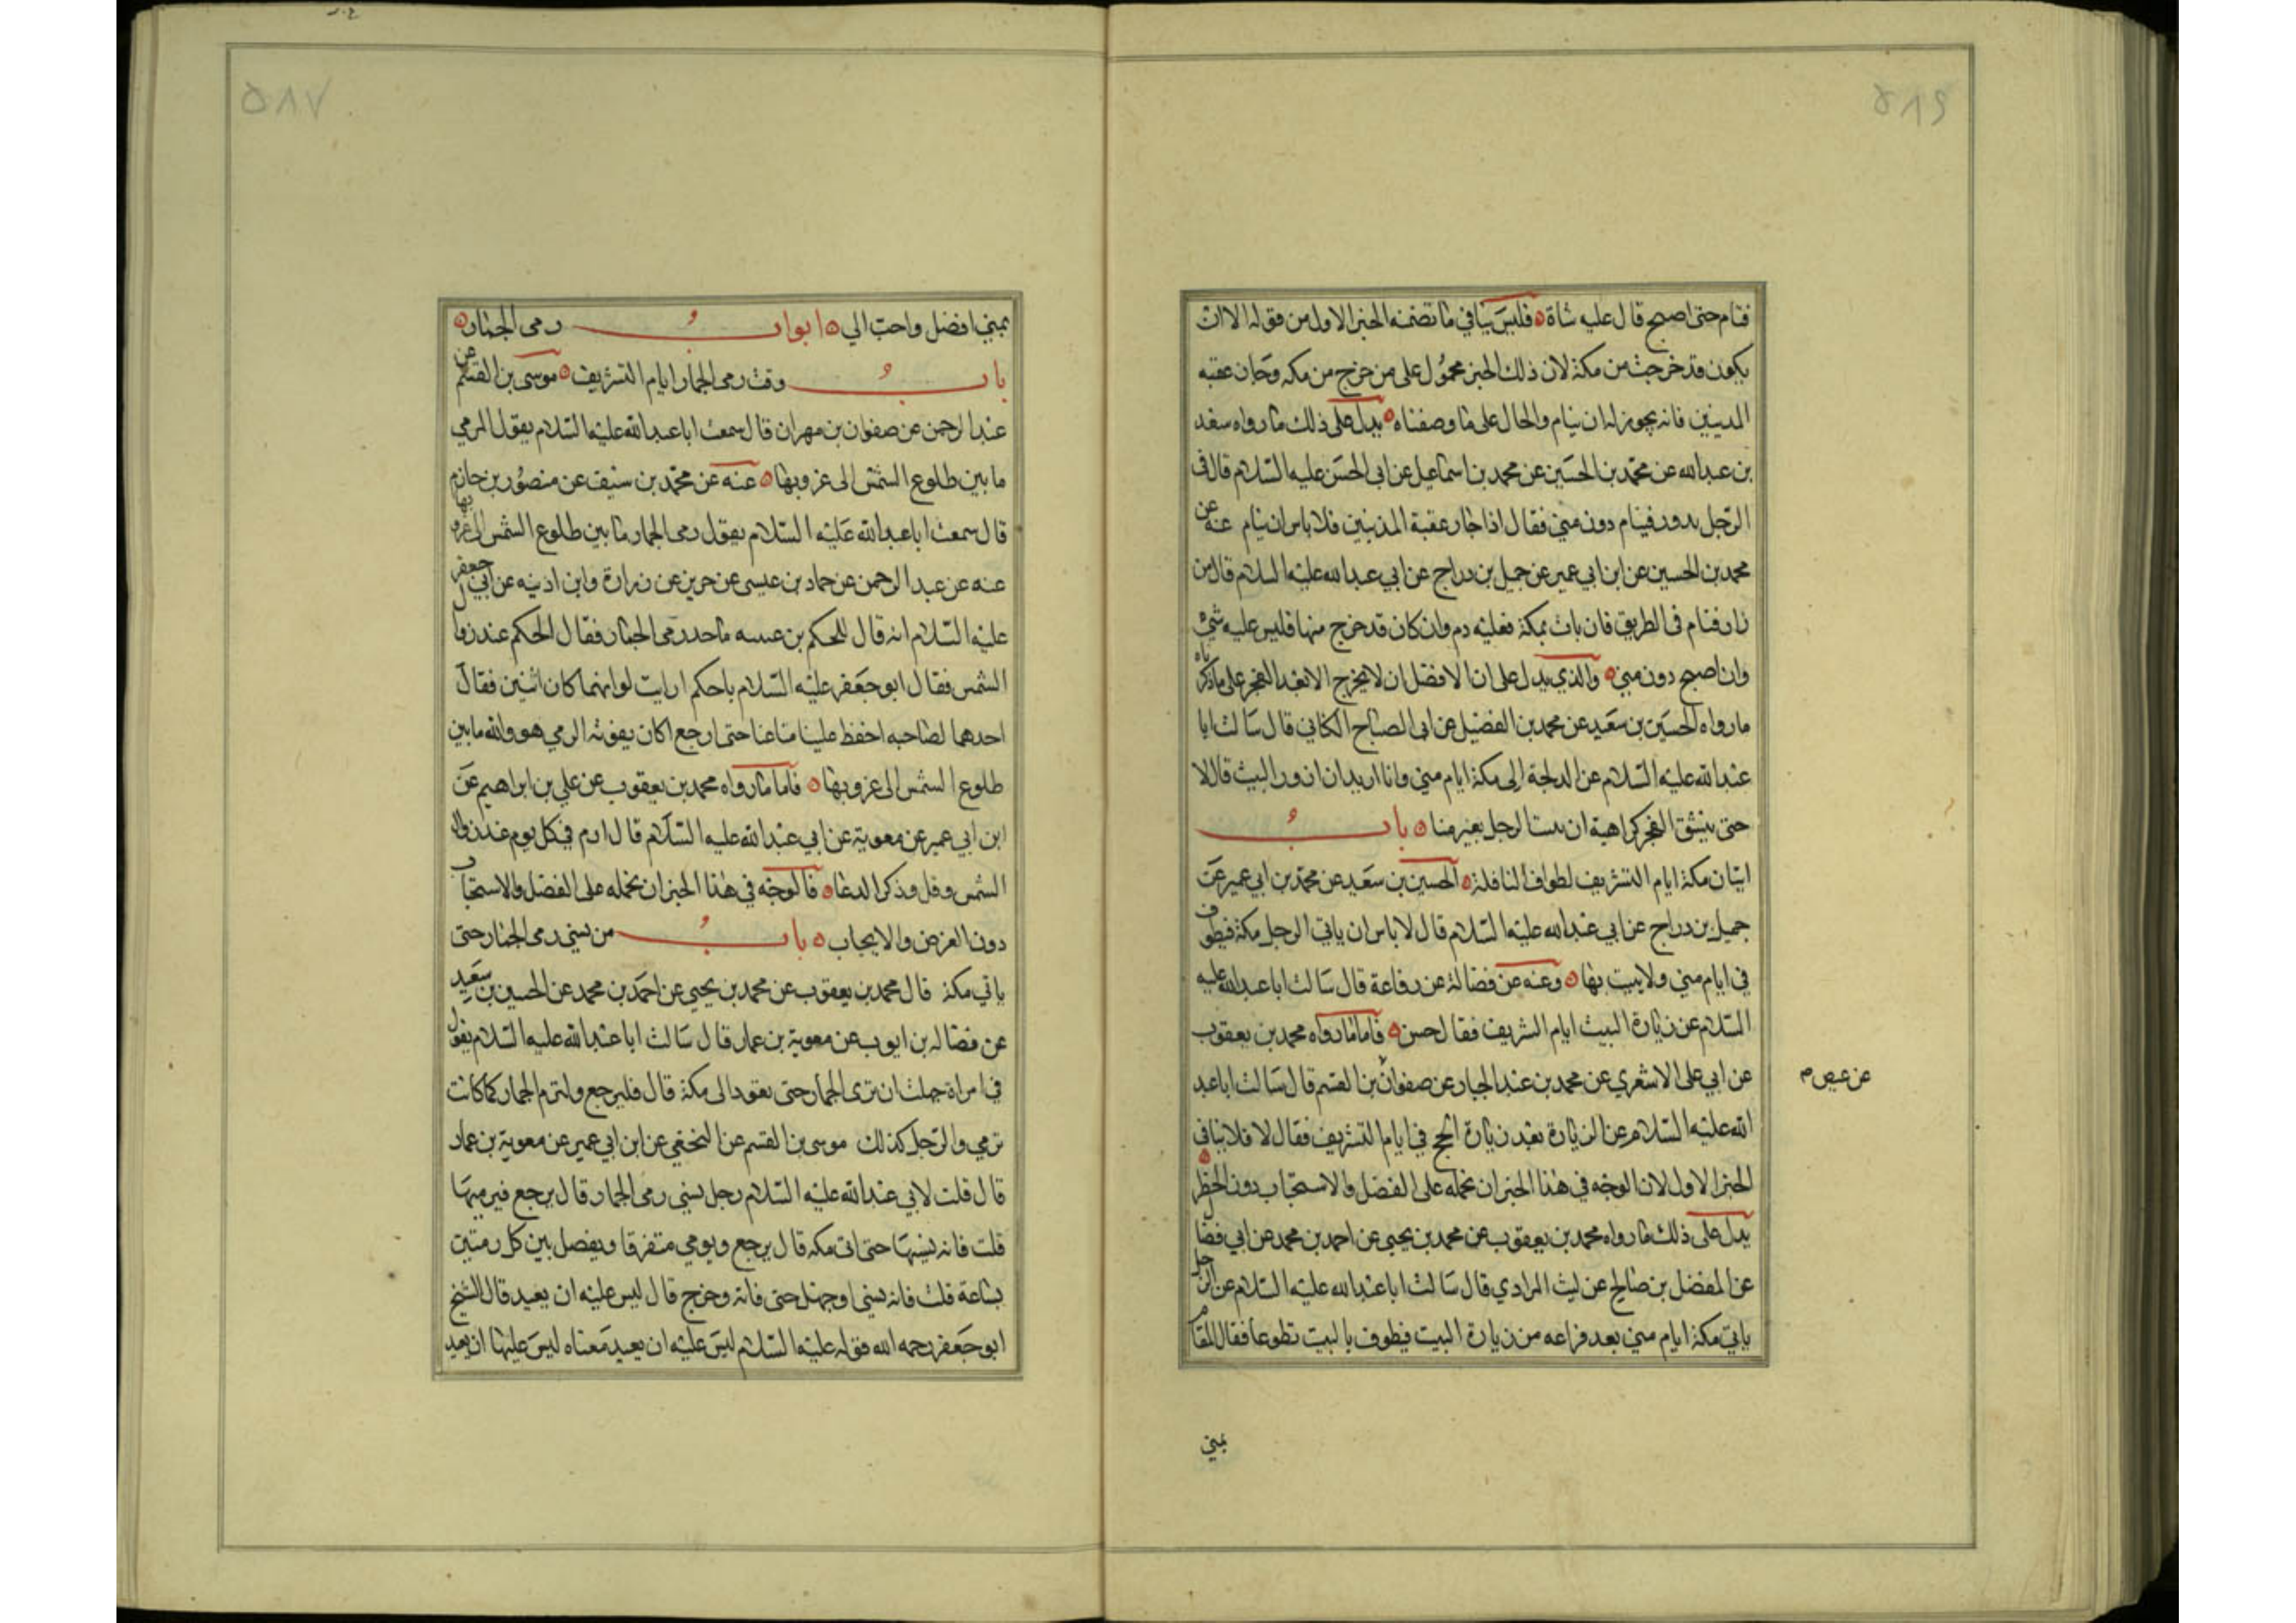 ٥٨٦
فنام حتى اصبح قال عليه شاة فليس ينافي ما تضمنه الخبر الاول من قوله الا ان
يكون قد خرجت من مكة لان ذلك الخبر محمول على من خرج من مكه وجاز عقبه
المدينين فانه يجوز له ان ينام والحال على ما وصفناه يدل على ذلك ما رواه سعد
بن عبد الله عن محمد بن الحسين عن محمد بن اسماعيل عن ابي الحسن عليه السلام قال في
الرجل يدور فينام دون منى فقال اذا جاز عقبة المدنيين فلا باس ان ينام عنه عن
محمد بن الحسين عن ابن ابي عمير عن جميل بن دراج عن ابي عبد الله عليه السلام قال من
زار فنام في الطريق فان بات بمكة فعليه دم وان كان قد خرج منها فليس عليه شئ
وان اصبح دون منى والذي يدل على ان الافضل ان لا يخرج الا بعد الفجر على ما ذكرناه
ما رواه الحسين بن سعيد عن محمد بن الفضيل عن ابي الصباح الكناني قال سالت ابا
عبد الله عليه السلام عن الدلجة الى مكة ايام منى وانا اريد ان ازور البيت قال لا
حتى ينشق الفجر كراهية ان يبيت الرجل بغير منا باب
اتيان مكة ايام التشريف لطواف النافلة الحسين بن سعيد عن محمد بن ابي عمير عن
جميل بن دراج عن ابي عبد الله عليه السلام قال لا باس ان ياتي الرجل مكة فيطوف
في ايام منى ولا يبيت بها وعنه عن فضالة عن رفاعة قال سالت ابا عبد الله عليه
السلام عن زيارة البيت ايام التشريف فقال حسن فاما ما رواه محمد بن يعقوب
عن ابي على الاشعري عن محمد بن عبد الجبار عن صفوان بن القسم قال سالت ابا عبد
عن عيص م
الله عليه السلام عن الزيارة بعد زيارة الحج في ايام التشريف فقال لا فلا ينافي
الخبر الاول لان الوجه في هذا الخبر ان نحمله على الفضل والاستحباب دون الحظر
يدل على ذلك ما رواه محمد بن يعقوب عن محمد بن يحيى عن احمد بن محمد عن ابي فضال
عن المفضل بن صالح عن ليث المرادي قال سالت ابا عبد الله عليه السلام عن الرجل
ياتي مكة ايام منى بعد فراغه من زيارة البيت فيطوف بالبيت تطوعا فقال المقام
بمنى
٥٨٧
بمنى افضل واحب الي ابواب رمى الجمار
باب وقت رمى الجمار ايام التشريف موسى بن القسم عن
عبد الرحمن عن صفوان بن مهران قال سمعت ابا عبد الله عليه السلام يقول الرمي
ما بين طلوع الشمس الى غروبها عنه عن محمد بن سيف عن منصور بن حازم
قال سمعت ابا عبد الله عليه السلام يقول رمى الجمار ما بين طلوع الشمس الى غروبها
عنه عن عبد الرحمن عن حماد بن عيسى عن حريز عن زرارة وابن اذينه عن ابي جعفر
عليه السلام انه قال للحكم بن عيينه ما حد رمى الجمار فقال الحكم عند زوال
الشمس فقال ابو جعفر عليه السلام ياحكم ارايت لو انهما كان اثنين فقال
احدهما لصاحبه احفظ علينا متاعنا حتى ارجع اكان يفوته الرمي هو والله ما بين
طلوع الشمس الى غروبها فاما ما رواه محمد بن يعقوب عن علي بن ابراهيم عن
ابن ابي عمير عن معوية عن ابي عبد الله عليه السلام قال ارم في كل يوم عند زوال
الشمس وقل وذكر الدعا فالوجه في هذا الخبر ان نحمله على الفضل والاستحباب
دون الفرض والايجاب باب من نسي رمى الجمار حتى
ياتي مكة قال محمد بن يعقوب عن محمد بن يحيى عن احمد بن محمد عن الحسين بن سعيد
عن فضاله بن ايوب عن معوية بن عمار قال سالت ابا عبد الله عليه السلام يقول
في امراة جهلت ان ترى الجمار حتى يعود الى مكة قال فليرجع ولترم الجمار كما كانت
ترمي والرجل كذلك موسى بن القسم عن النخعي عن ابن ابي عمير عن معوية بن عمار
قال قلت لابي عبد الله عليه السلام رجل نسي رمى الجمار قال يرجع فيرميها
قلت فانه نسيها حتى اتى مكه قال يرجع ويومي متفرقا ويفصل بين كل رمتين
بساعة قلت فانه نسي او جهل حتى فاته وخرج قال ليس عليه ان يعيد قال الشيخ
ابو جعفر رحمه الله قوله عليه السلام ليس عليه ان يعيد معناه ليس عليها ان يعيد